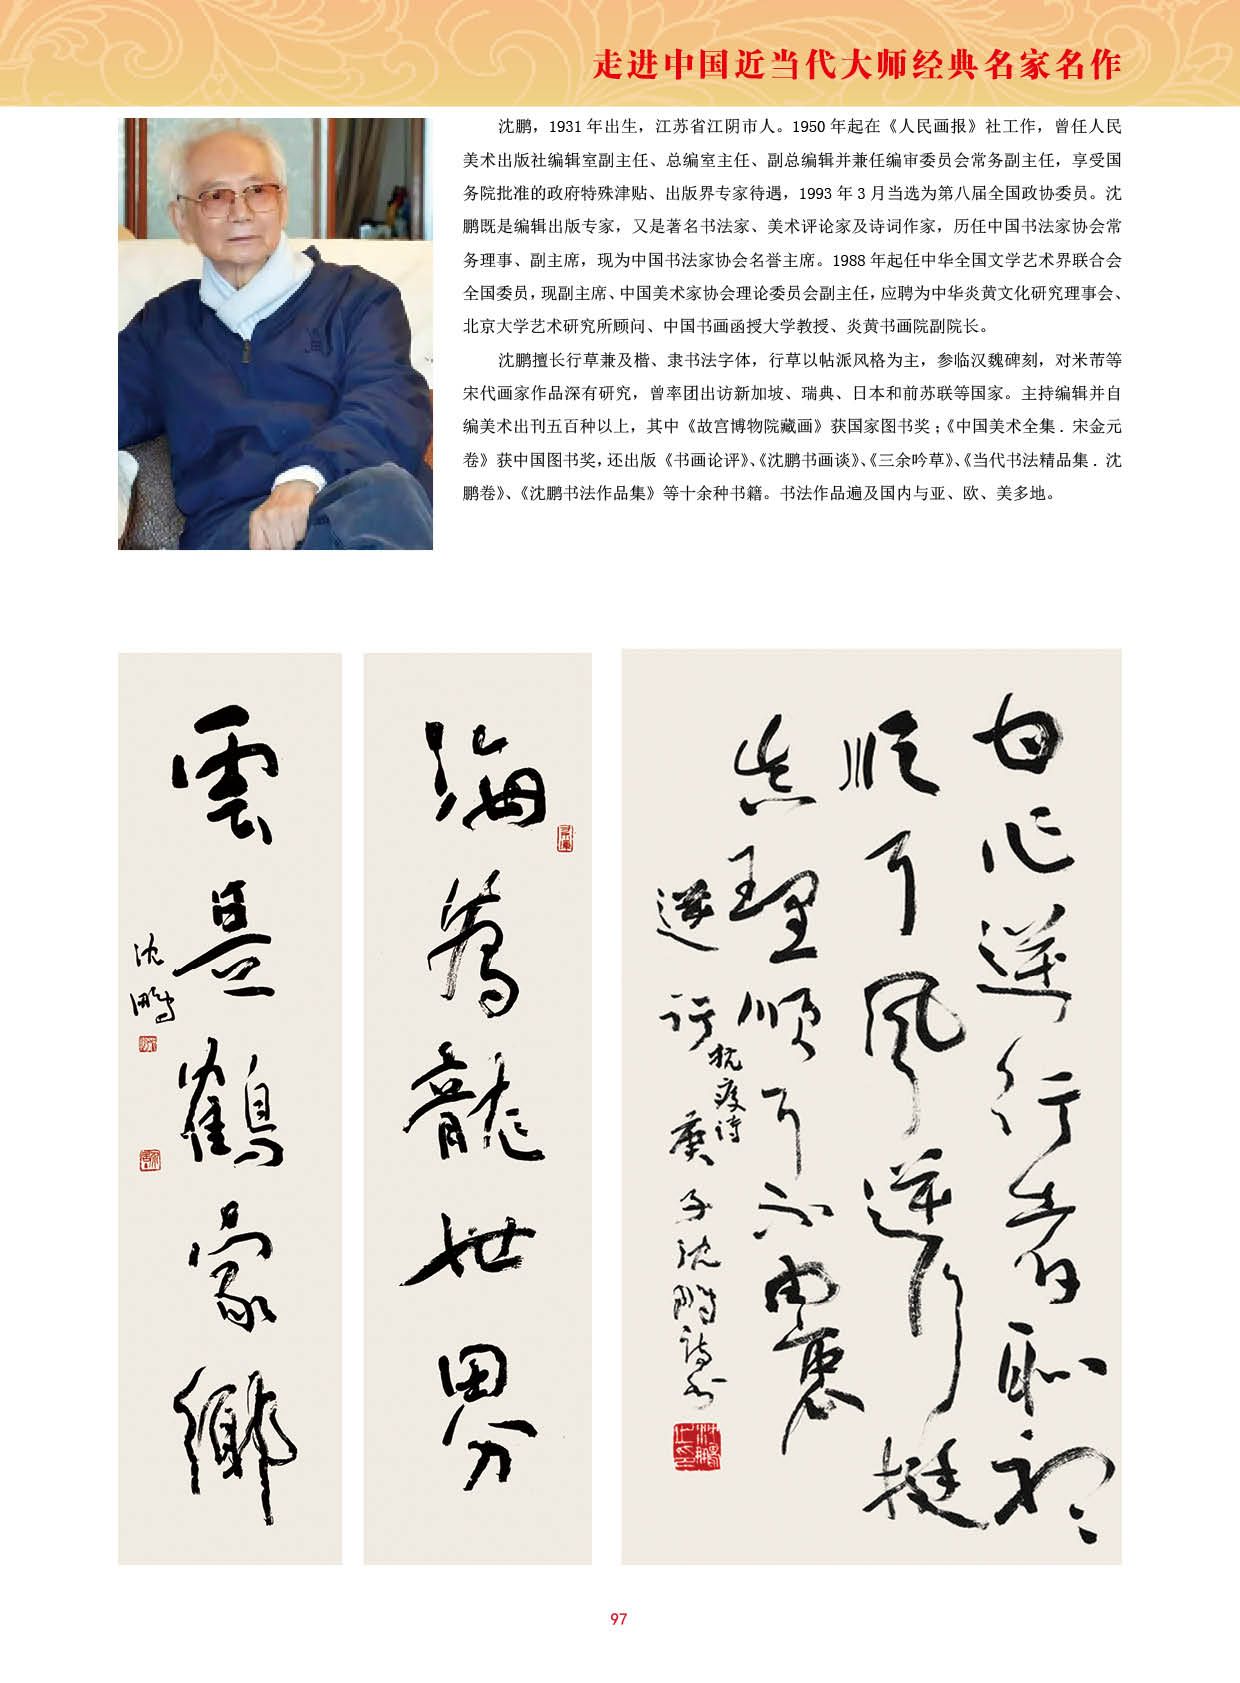 走进中国近当代大师经典名家名作
沈鹏，1931 年出生，江苏省江阴市人。1950 年起在《人民画报》社工作，曾任人民
美术出版社编辑室副主任、总编室主任、副总编辑并兼任编审委员会常务副主任，享受国
务院批准的政府特殊津贴、出版界专家待遇，1993 年 3 月当选为第八届全国政协委员。沈
鹏既是编辑出版专家，又是著名书法家、美术评论家及诗词作家，历任中国书法家协会常
务理事、副主席，现为中国书法家协会名誉主席。1988 年起任中华全国文学艺术界联合会
全国委员，现副主席、中国美术家协会理论委员会副主任，应聘为中华炎黄文化研究理事会、
北京大学艺术研究所顾问、中国书画函授大学教授、炎黄书画院副院长。
沈鹏擅长行草兼及楷、隶书法字体，行草以帖派风格为主，参临汉魏碑刻，对米芾等
宋代画家作品深有研究，曾率团出访新加坡、瑞典、日本和前苏联等国家。主持编辑并自
编美术出刊五百种以上，其中《故宫博物院藏画》获国家图书奖；《中国美术全集．宋金元
卷》获中国图书奖，还出版《书画论评》、《沈鹏书画谈》、《三余吟草》、《当代书法精品集．沈
鹏卷》、《沈鹏书法作品集》等十余种书籍。书法作品遍及国内与亚、欧、美多地。
海为龍世界
雲是鶴家鄉
沈鹏
逆行者
顺 风逆行挺
真理顺 不由衷
逆行
抗疫诗
庚子沈鹏诗书
97